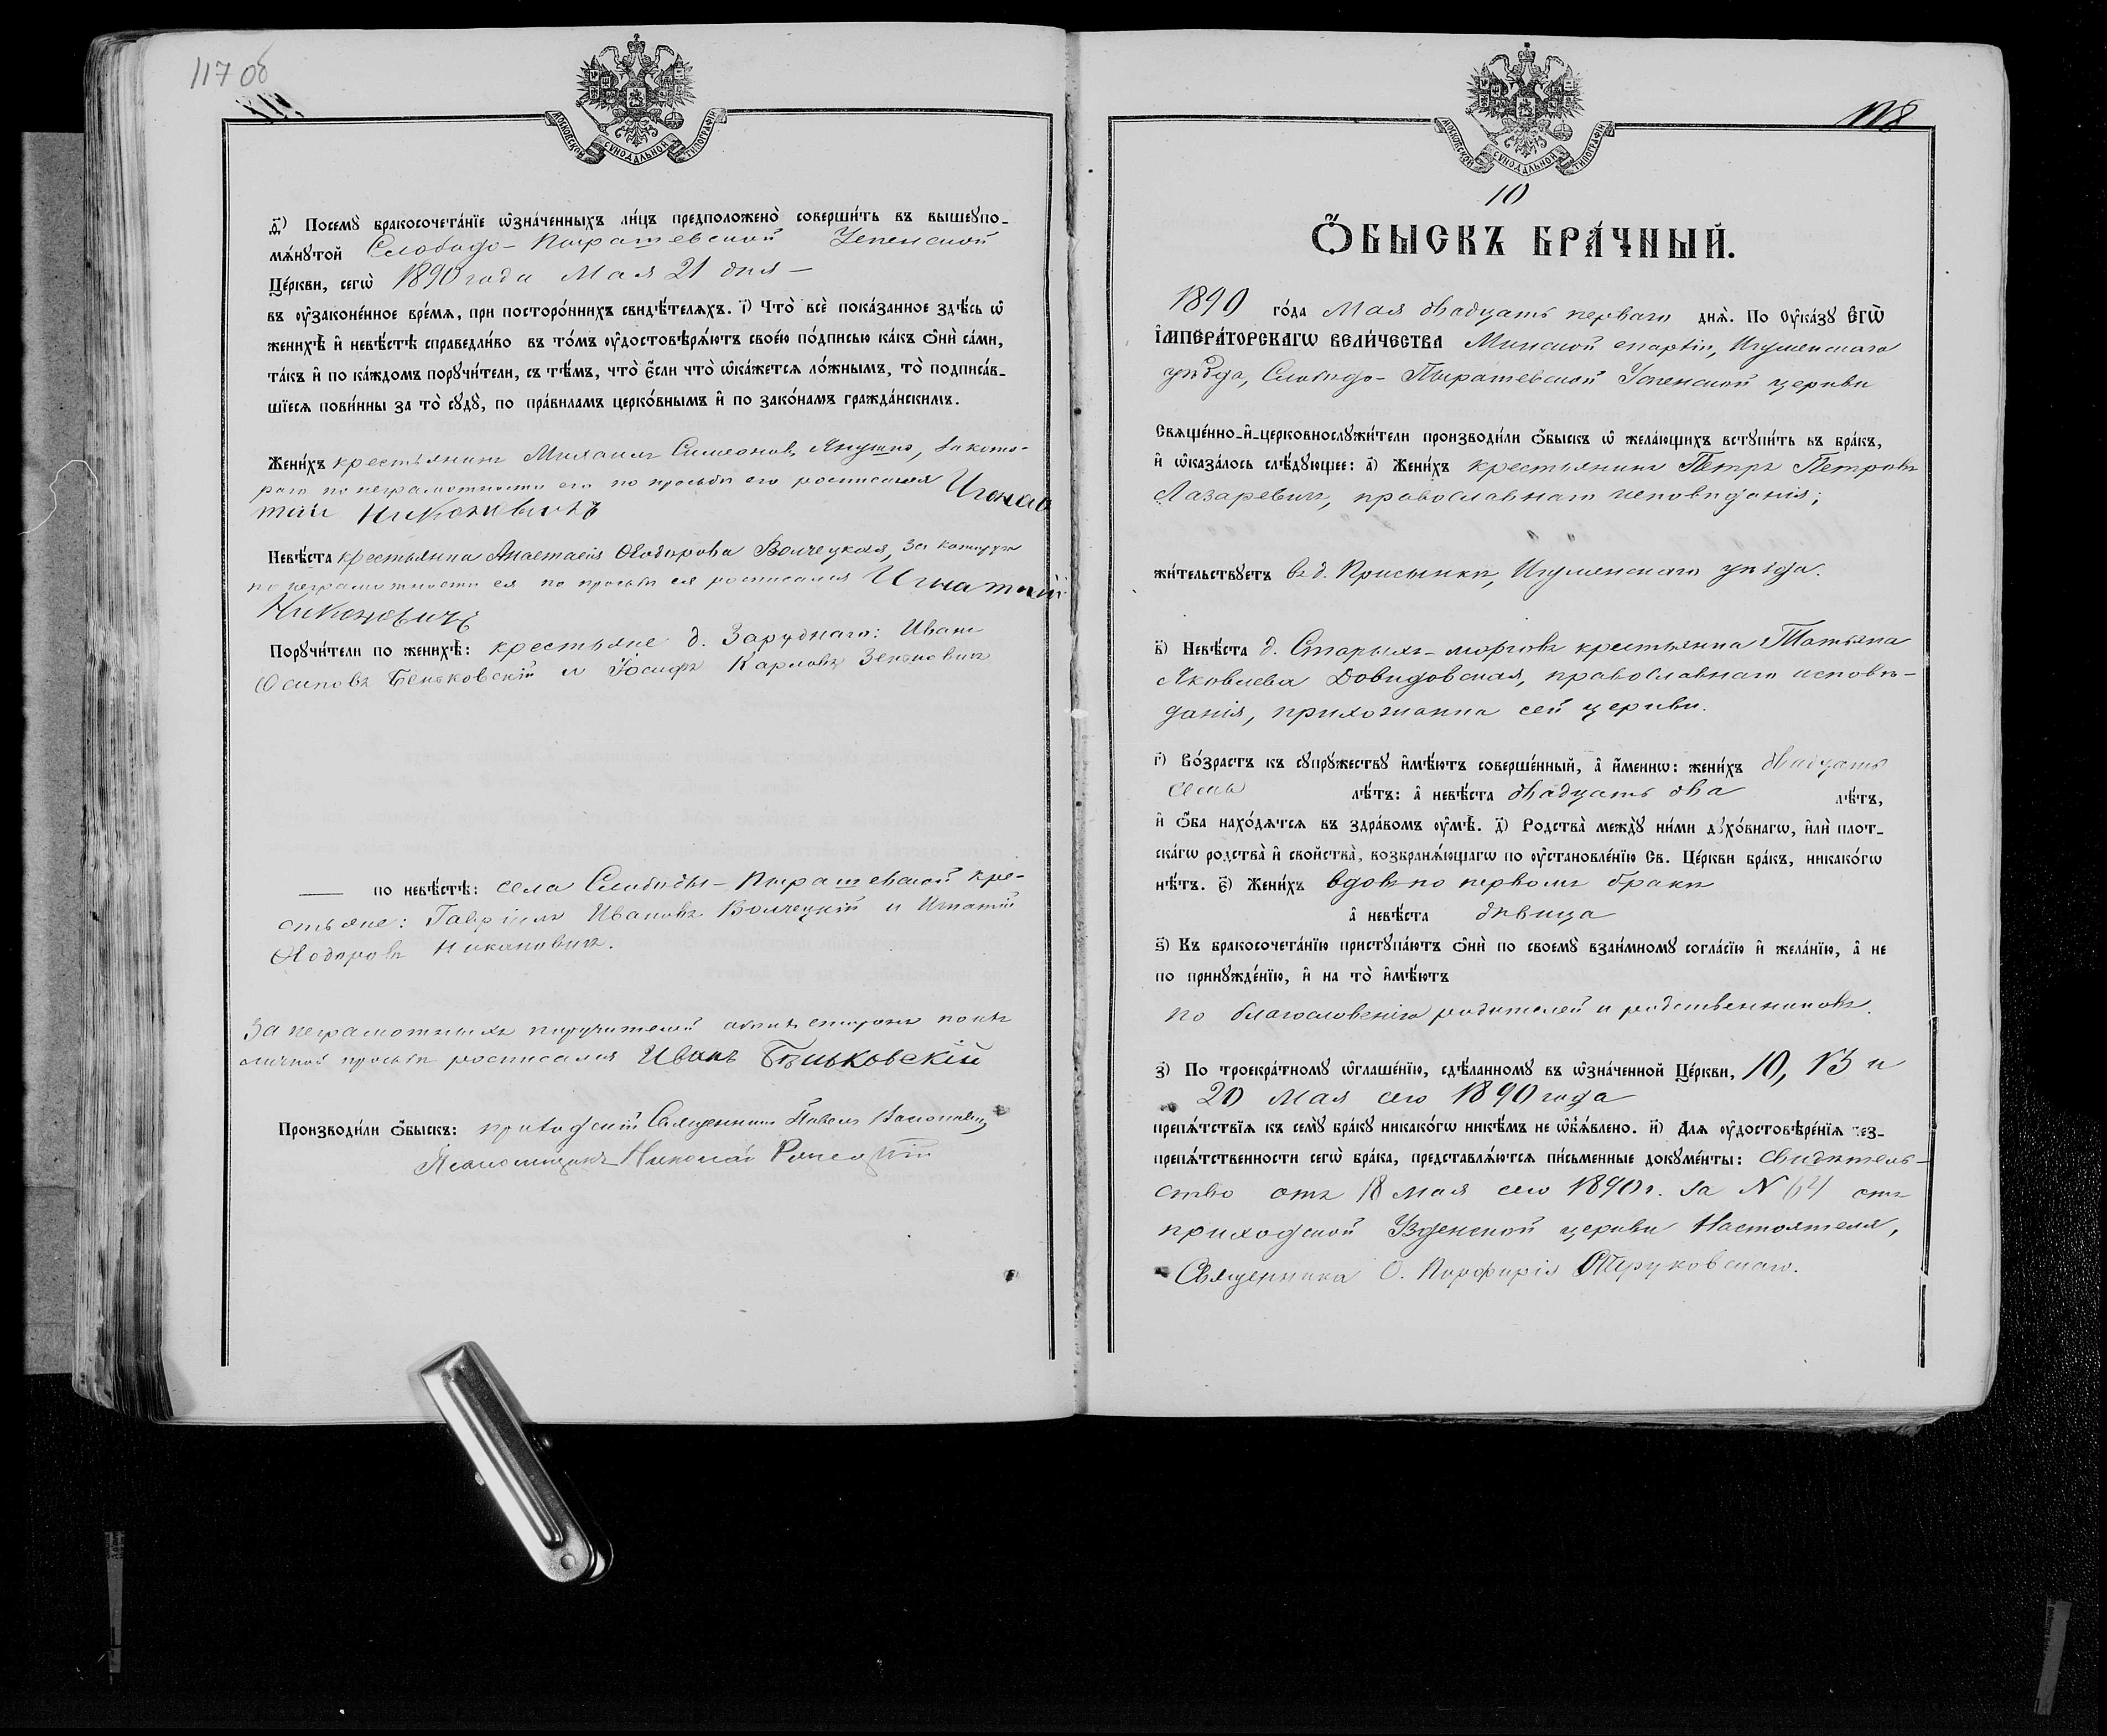 117 об
МОСКОВСКОЙ СѴНОДАЛЬНОЙ ТИПОГРАФІИ
д҃) Посемꙋ̀ бракосочета́нїе ѡ҆зна́ченныхъ ли́цъ предположено̀ соверши́ть въ вышеꙋпо-
мѧ́нꙋтой Слободо-Пырашевской Успенской
Це́ркви, сегѡ̀ 1890 года Мая 21 дня —
въ оу҆законе́нное вре́мѧ, при посторо́ннихъ свидѣ́телѧхъ. і҃) Что̀ всѐ пока́занное здѣ́сь ѡ҆
женихѣ̀ и҆ невѣ́стѣ справедли́во въ то́мъ оу҆достовѣрѧ́ютъ свое́ю по́дписью ка́къ ѻ҆нѝ са́ми,
та́къ и҆ по ка́ждомъ порꙋчи́тели, съ тѣ́мъ, что̀ є҆́сли что̀ ѡ҆ка́жетсѧ ло́жнымъ, то̀ подписа́в-
шїесѧ пови́нны за то̀ сꙋдꙋ̀, по пра́виламъ церко́внымъ и҆ по зако́намъ гражда́нскимъ.
Жени́хъ крестьянинъ Михаилъ Симеоновъ Янушко, за кото-
раго по неграмотности его по просьбѣ его росписался Игна
тій Никоновичъ
Невѣ́ста крестьянка Анастасія Ѳеодорова Волчецкая, за которую
по неграмотности ея по просьбѣ ея росписался Игнатій
Никоновичъ
Порꙋчи́тели по женихѣ̀: крестьяне д. Заруднаго: Иванъ
Осиповъ Беньковскій и Іосифъ Карловъ Зенковичъ
—— по невѣ́стѣ: села Слободы-Пырашевской кре-
стьяне: Гавріилъ Ивановъ Волчецкій и Игнатій
Ѳеодоровъ Никоновичъ.
За неграмотныхъ поручителей обѣихъ сторонъ по ихъ
личной просьбѣ росписался Иванъ Бѣньковскій
Производи́ли ѻ҆́быскъ: приходскій Священникъ Павелъ
Псаломщикъ Николай
118
МОСКОВСКОЙ СѴНОДАЛЬНОЙ ТИПОГРАФІИ
10
Ѻ҆́БЫСКЪ БРА́ЧНЫЙ.
1890 го́да Мая двадцать перваго днѧ̀. По Оу҆ка́зꙋ Є҆ГѠ̀
І҆МПЕРА́ТОРСКАГѠ ВЕЛИ́ЧЕСТВА Минской епархіи, Игуменскаго
уѣзда, Слободо-Пырашевской Успенской церкви
Свѧще́нно-и҆-церковнослꙋжи́тели производи́ли ѻ҆́быскъ ѡ҆ жела́ющихъ встꙋпи́ть въ бра́къ,
и҆ ѡ҆каза́лось слѣ́дꙋющее: а҃) Жени́хъ крестьянинъ Петръ Петровъ
Лазаревичъ, православнаго исповѣданія;
жи́тельствꙋетъ въ д. Присынкѣ, Игуменскаго уѣзда.
в҃) Невѣ́ста д. Старыхъ-морговъ крестьянка Татьяна
Яковлева Довидовская, православнаго исповѣ-
данія, прихожанка сей церкви.
г҃) Во́зрастъ къ сꙋпрꙋ́жествꙋ и҆мѣ́ютъ соверше́нный, а҆ и҆́меннѡ: жени́хъ двадцать
семь лѣ́тъ: а҆ невѣ́ста двадцать два лѣ́тъ,
и҆ ѻ҆́ба нахо́дѧтсѧ въ здра́вомъ оу҆мѣ̀. д҃) Родства̀ междꙋ̀ ни́ми дꙋхо́внагѡ, и҆лѝ плот-
ска́гѡ родства̀ и҆ сво́йства̀, возбранѧ́ющагѡ по оу҆становле́нїю Св. Це́ркви бра́къ, никако́гѡ
нѣ́тъ. є҃) Жени́хъ вдовъ по первомъ бракѣ
а҆ невѣ́ста дѣвица
ѕ҃) Къ бракосочета́нїю пристꙋпа́ютъ ѻ҆нѝ по своемꙋ̀ взаи́мномꙋ согла́сїю и҆ жела́нїю, а҆ не
по принꙋжде́нїю, и҆ на то̀ и҆мѣ́ютъ
по благословенію родителей и родственниковъ.
з҃) По троекра́тномꙋ ѡ҆глаше́нїю, сдѣ́ланномꙋ въ ѡ҆зна́ченной Це́ркви, 10, 13 и
20 Мая сего 1890 года
препѧ́тствїѧ къ семꙋ̀ бра́кꙋ никако́гѡ никѣ́мъ не ѡ҆б̾ѧ́влено. и҃) Длѧ оу҆достовѣре́нїѧ без-
препѧ́тственности сегѡ̀ бра́ка, представлѧ́ютсѧ пи́сьменные докꙋме́нты: свидѣтель-
ство отъ 18 мая сего 1890 г. за N 64 отъ
приходской Узденской церкви Настоятеля,
Священника О. Порфирія